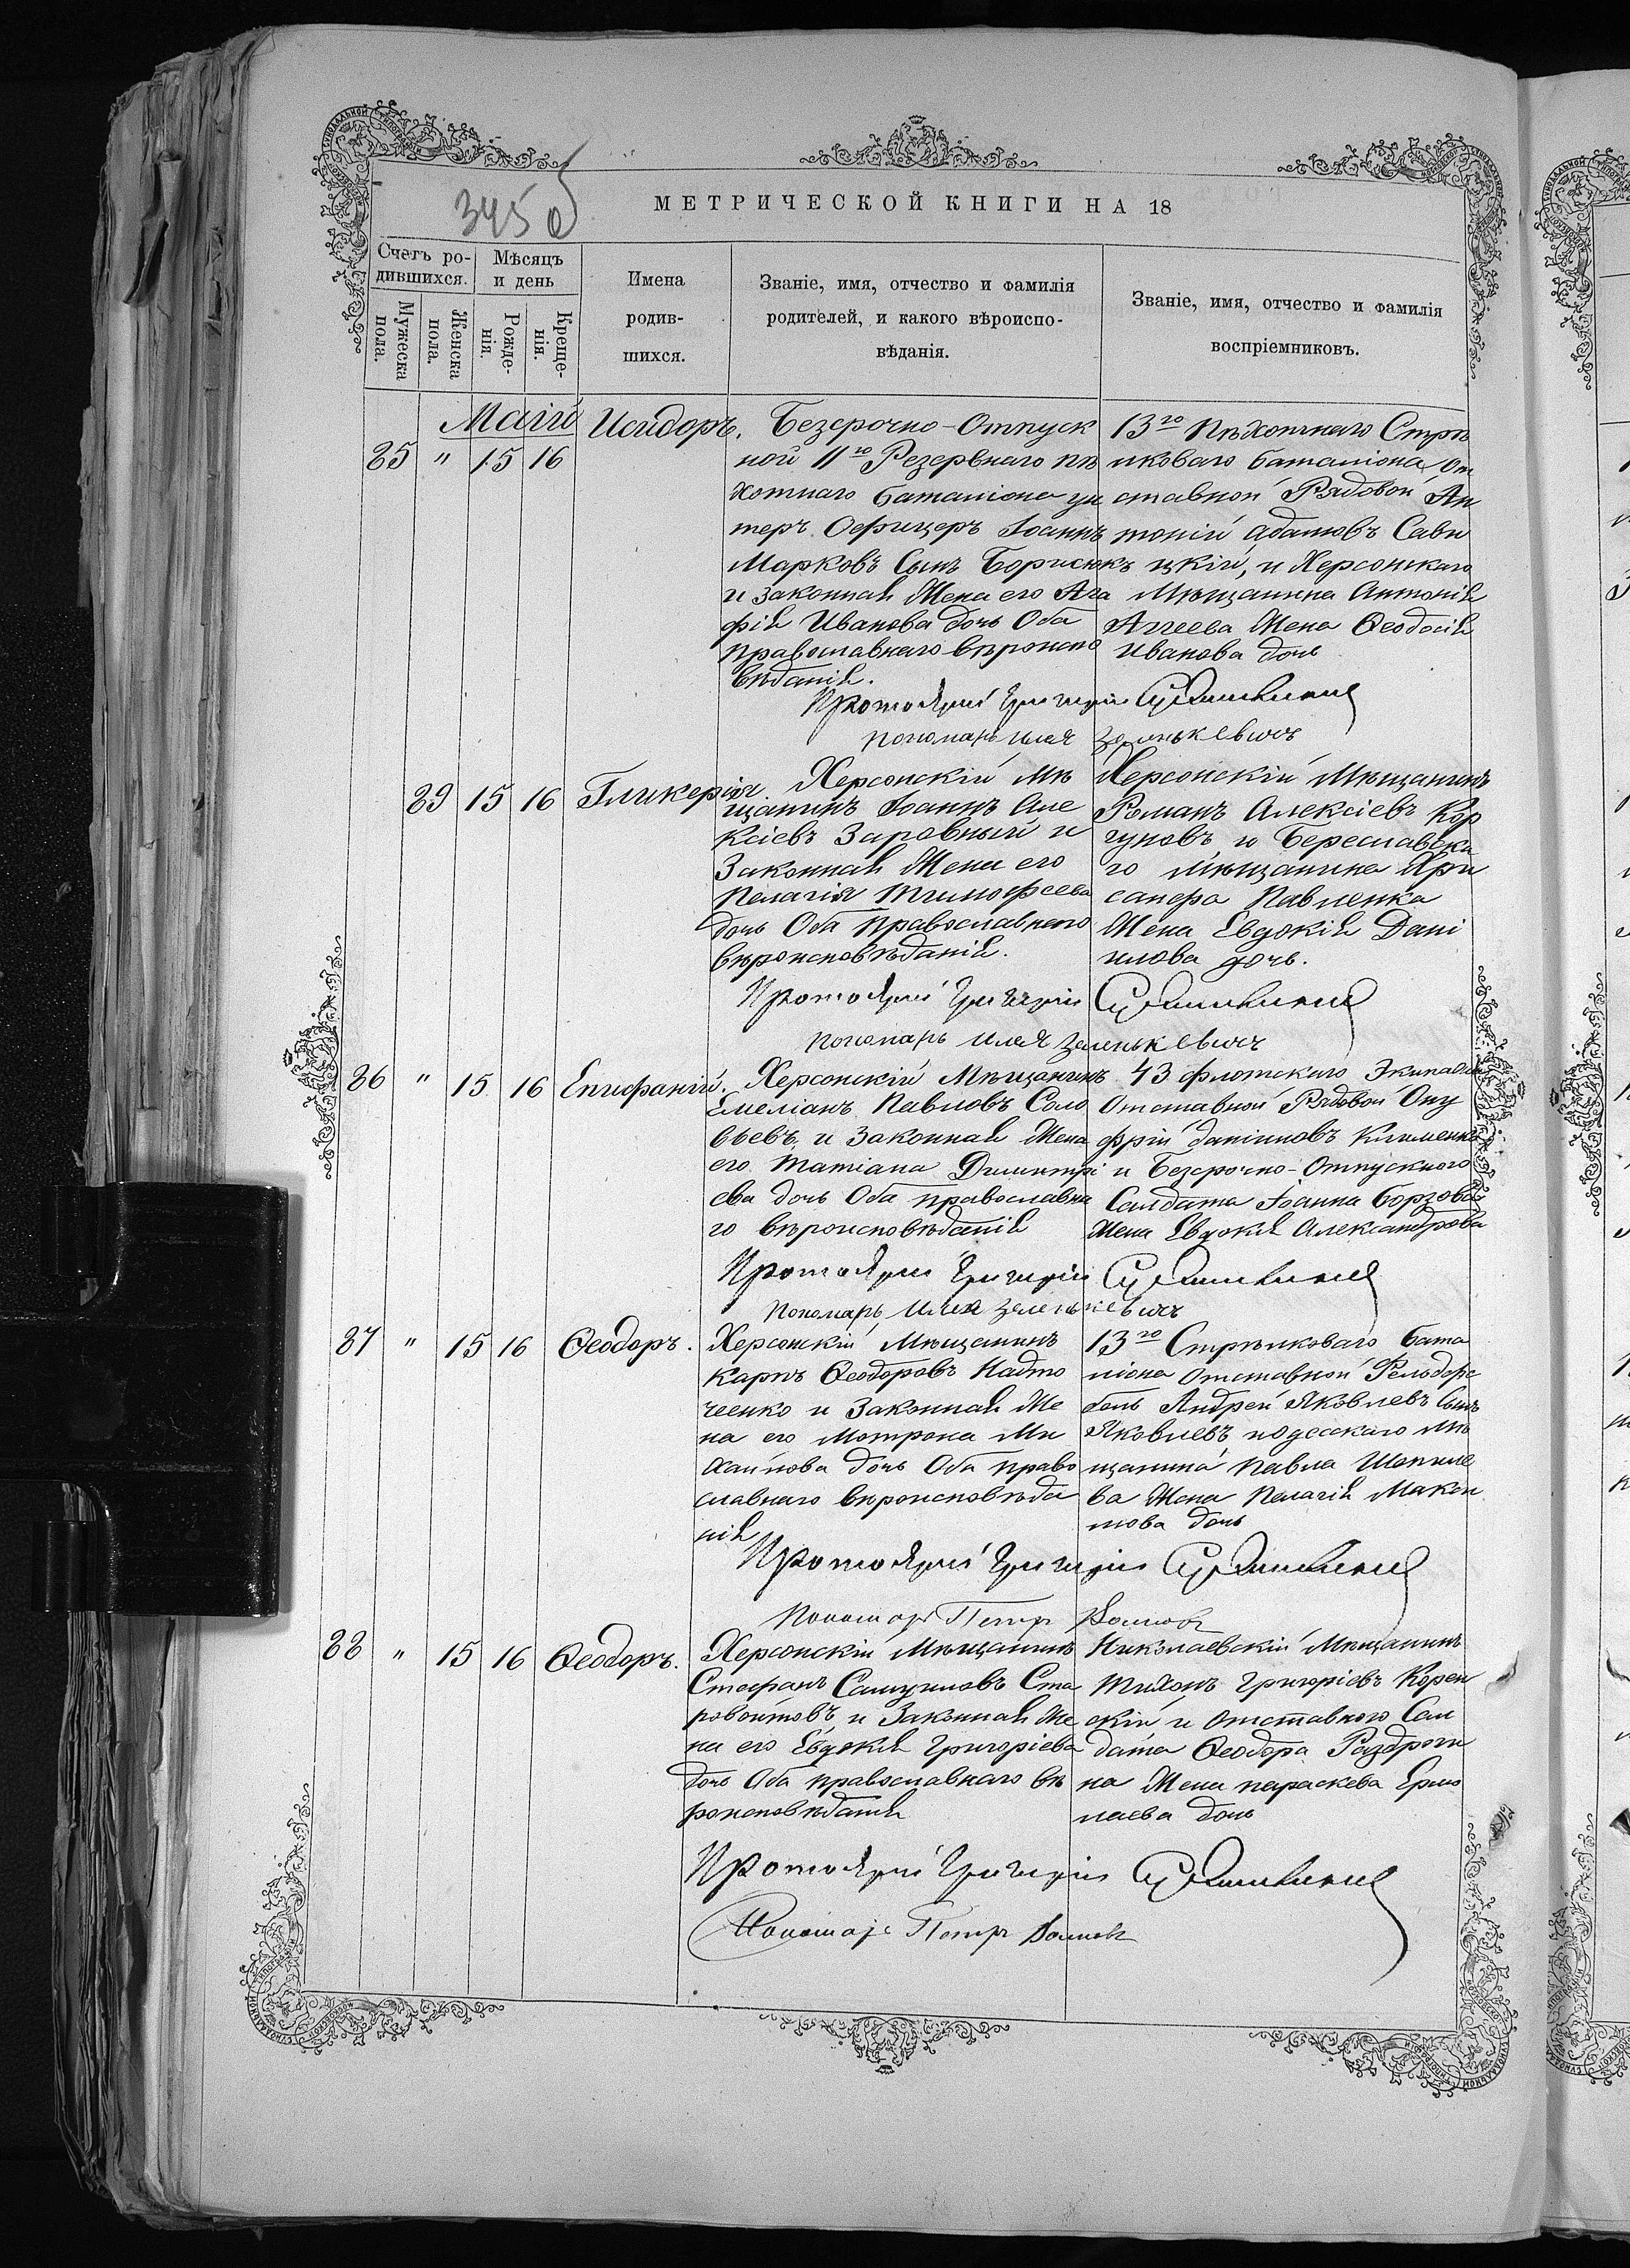 345 об
МЕТРИЧЕСКОЙ КНИГИ НА 18
Счетъ ро-
дившихся.
Мужеска
пола.
Женска
пола.
Мѣсяцъ
и день
Рожде-
нія.
Креще-
нія.
Имена
родив-
шихся.
Званіе, имя, отчество и фамилія
родителей, и какого вѣроиспо-
вѣданія.
Званіе, имя, отчество и фамилія
воспріемниковъ.
Маій
85 " 15 16
Исидоръ.
Безсрочно-Отпуск
ной 11го Резервнаго пѣ
хотнаго баталіона ун
теръ Офицеръ Іоаннъ
Марковъ Сынъ Борисюкъ
и законная Жена его Ага
фія Иванова дочь Оба
православнаго вѣроиспо
вѣданія.
13го Пѣхотнаго Стрѣ
лковаго баталіона От
ставной Рядовой Ан
тоній Адамовъ Сави
цкій, и Херсонскаго
Мѣщанина Антонія
Аггеева Жена Ѳеодосія
Иванова дочь
Протоіерей Григорій
пономарь Илія Зеленькевичъ
89 15 16
Гликерія
Херсонскій Мѣ
щанинъ Іоаннъ Але
ксіевъ Заровный и
Законная Жена его
Пелагія Тимофеева
дочь Оба православнаго
вѣроисповѣданія.
Херсонскій Мѣщанинъ
Романъ Алексіевъ Кор
гуновъ и Бериславска
го Мѣщанина Хри
санфа Павленка
Жена Евдокія Дані
илова дочь.
Протоіерей Григорій
пономарь Илія Зеленькевичъ
86 " 15 16
Епифаній.
Херсонскій Мѣщанинъ
Емеліанъ Павловъ Соло
вьевъ и Законная Жена
его Татіана Димитрі
ева дочь Оба православна
го вѣроисповѣданія
43 флотскаго Экипажа
Отставной Рядовой Ону
фрій Даніиловъ Клименко
и Безсрочно-Отпускного
Салдата Іоанна Борзова
Жена Евдокія Александрова
Протоіерей Григорій
пономарь Илія Зеленькевичъ
87 " 15 16
Ѳеодоръ.
Херсонскій Мѣщанинъ
Карпъ Ѳеодоровъ Надто
чеенко и Законная Же
на его Мотрона Ми
хайлова дочь Оба право
славнаго вѣроисповѣда
нія
13го Стрѣлковаго бата
ліона Отставной Фельдфе
бель Андрей Яковлевъ Сынъ
Яковлевъ и одесскаго Мѣ
щанина Павла
ва Жена Пелагія
мова дочь
Протоіерей Григорій
Пономарь Петръ
88 " 15 16
Ѳеодоръ.
Херсонскій Мѣщанинъ
Стефанъ Самуиловъ Ста
ровойтовъ и Законная Же
на его Евдокія Григоріева
дочь Оба православнаго вѣ
роисповѣданія
Николаевскій Мѣщанинъ
Тихонъ Григоріевъ Корен
скій и отставного Сал
дата Ѳеодора Раздроги
на Жена параскева Ермо
лаева дочь
Протоіерей Григорій
Пономарь Петръ